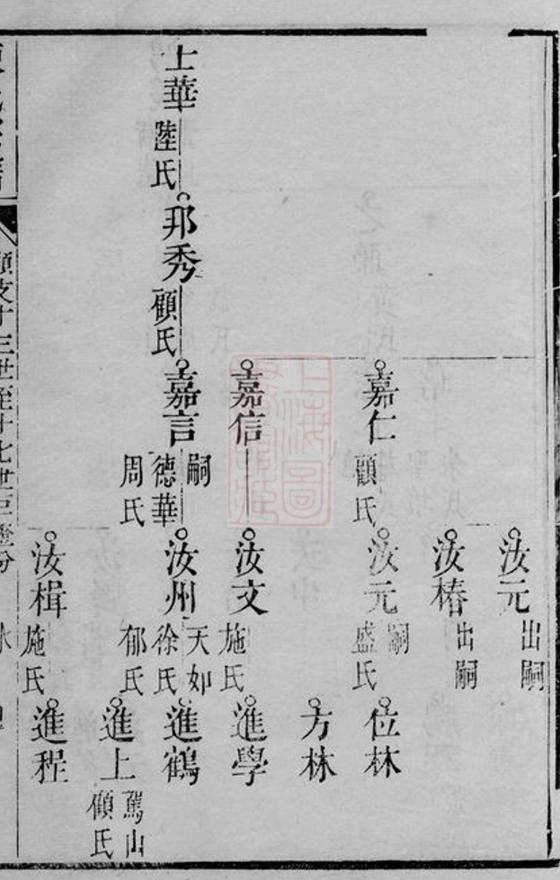 汝元 出嗣
汝椿 出嗣
嘉仁 顧氏 汝元 嗣 盛氏 位林
方林
嘉信 汝文 施氏 進學
士華 陸氏 邦秀 顧氏 嘉言 嗣 德華 周氏 汝州 天如 徐氏 郁氏 進鶴
進上 駕山 顧氏
汝楫 施氏 進程
支十三世至十七世
上海圖書館藏